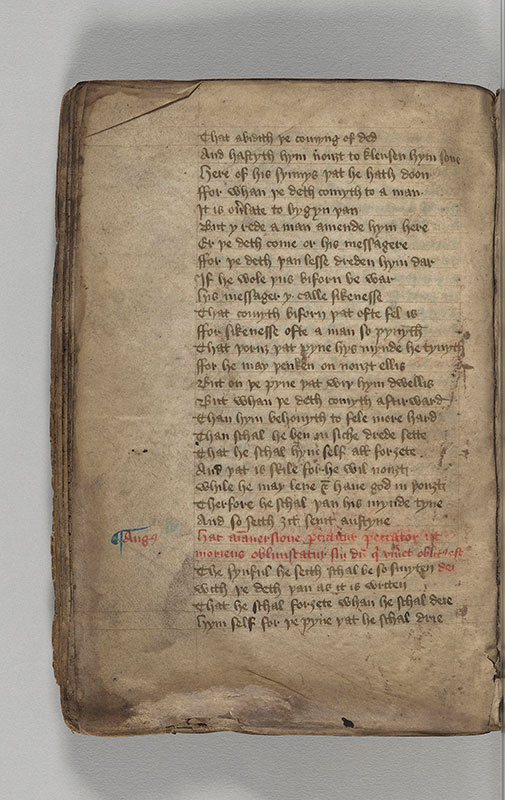 That abidith þe comyng of ded
And hastyth hym nouȝt to klensen hym sone
Here of his synnys þat he hath doon
ffor whan þe deth comyth to a man
It is ou̾late to bygyn þan
But y rede a man amende hym here
Er þe deth come or his messagere
ffor þe deth þan lesse dreden hym dar
If he wole þus biforn be war
his messager y calle sikenesse
That comyth biforn þat ofte fel is
ffor sikenesse ofte a man so pynyth
That þoruȝ þat pyne hys mynde he tynyth
ffor he may þenken on nouȝt ellis
But on þe pyne þat wiþ hym dwellis
But whan þe deth comyth afturward
Than hym behouyth to fele more hard
Than schal he ben in siche drede sette
That he schal hym self all forȝete
And þat is skile for he wil nouȝt
While he may leue & haue god in þouȝt
Therfore he schal þan his mynde tyne
And so seith ȝit seint austyne
¶ Aug9
hac aīaduersione p̄cutitur peccator ut
moriens obliuiscatur sui dū q̄ viuēs oblit9 est
dei
The synful he seith schal be so smyten
with þe deth þan as it is writen
That he schal forȝete whan he schal deie
hym self for þe pyne þat he schal drie